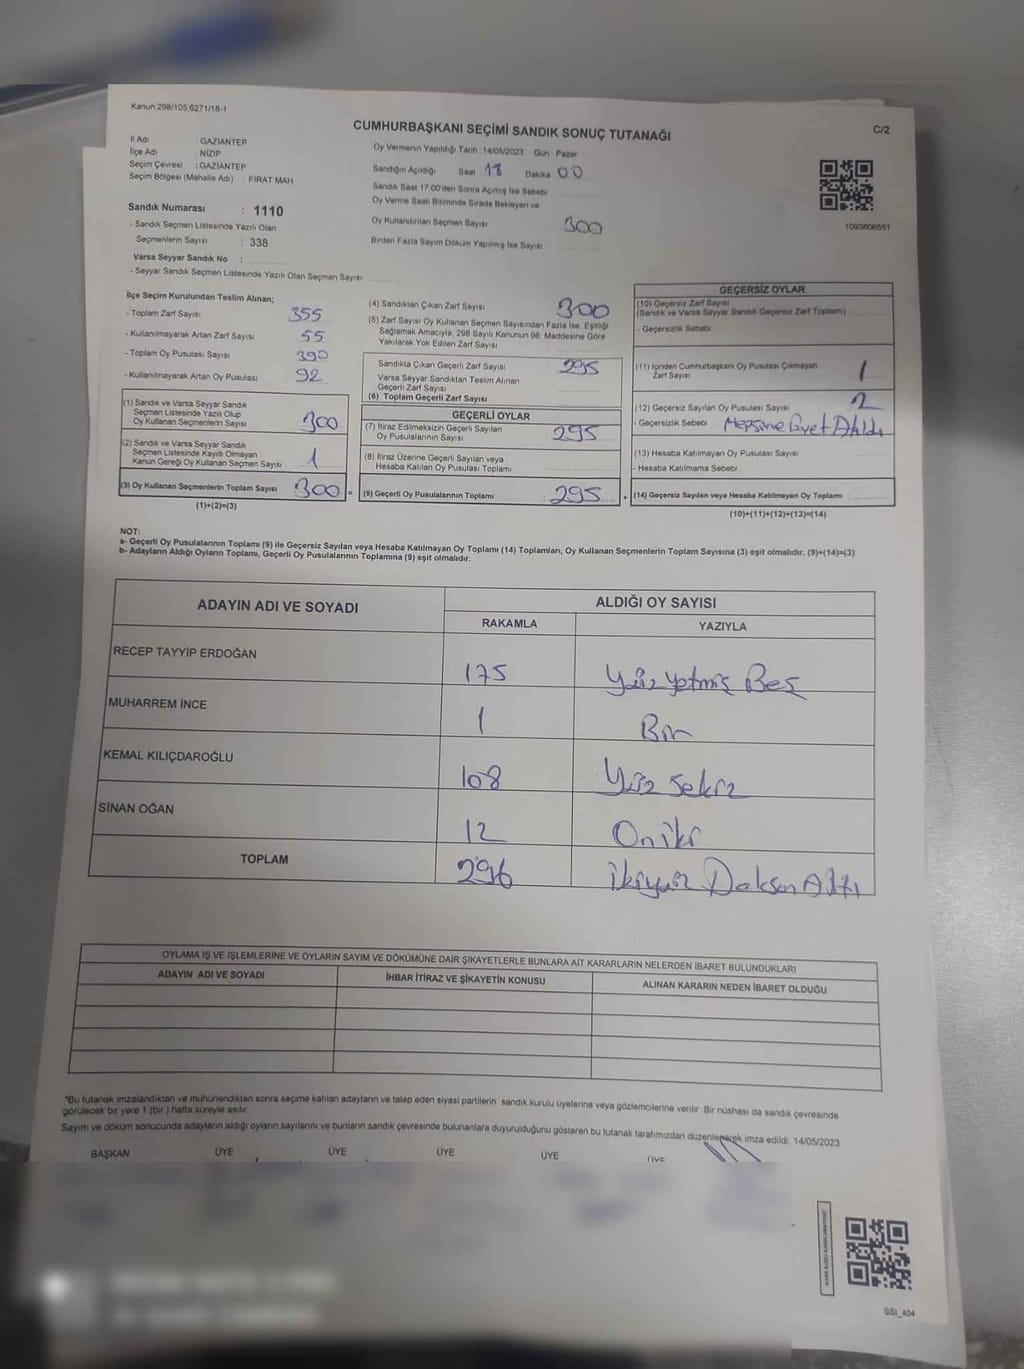 Kanun 298/105,6271/18-1
CUMHURBAŞKANI SEÇİMİ SANDIK SONUÇ TUTANAĞI
C/2
İl Adı : GAZİANTEP
İlçe Adı : NİZİP
Seçim Çevresi : GAZİANTEP
Seçim Bölgesi (Mahalle Adı) : FIRAT MAH
Oy Vermenin Yapıldığı Tarih : 14/05/2023 Gün : Pazar
Sandığın Açıldığı Saat 18 Dakika 00
Sandık Saat 17:00'den Sonra Açılmış İse Sebebi
Oy Verme Saati Bitiminde Sırada Bekleyen ve
Oy Kullandırılan Seçmen Sayısı 300
Birden Fazla Sayım Döküm Yapılmış İse Sayısı
1093606551
Sandık Numarası : 1110
- Sandık Seçmen Listesinde Yazılı Olan
Seçmenlerin Sayısı : 338
Varsa Seyyar Sandık No :
- Seyyar Sandık Seçmen Listesinde Yazılı Olan Seçmen Sayısı
İlçe Seçim Kurulundan Teslim Alınan;
- Toplam Zarf Sayısı 355
- Kullanılmayarak Artan Zarf Sayısı 55
- Toplam Oy Pusulası Sayısı 390
- Kullanılmayarak Artan Oy Pusulası 92
(1) Sandık ve Varsa Seyyar Sandık
Seçmen Listesinde Yazılı Olup
Oy Kullanan Seçmenlerin Sayısı 300
(2) Sandık ve Varsa Seyyar Sandık
Seçmen Listesinde Kayıtlı Olmayan
Kanun Gereği Oy Kullanan Seçmen Sayısı 1
(3) Oy Kullanan Seçmenlerin Toplam Sayısı 300 =
(1)+(2)=(3)
(4) Sandıktan Çıkan Zarf Sayısı 300
(5) Zarf Sayısı Oy Kullanan Seçmen Sayısından Fazla İse, Eşitliği
Sağlamak Amacıyla, 298 Sayılı Kanunun 98. Maddesine Göre
Yakılarak Yok Edilen Zarf Sayısı
Sandıkta Çıkan Geçerli Zarf Sayısı 295
Varsa Seyyar Sandıktan Teslim Alınan
Geçerli Zarf Sayısı
(6) Toplam Geçerli Zarf Sayısı
GEÇERLİ OYLAR
(7) İtiraz Edilmeksizin Geçerli Sayılan
Oy Pusulalarının Sayısı 295
(8) İtiraz Üzerine Geçerli Sayılan veya
Hesaba Katılan Oy Pusulası Toplamı
(9) Geçerli Oy Pusulalarının Toplamı 295 +
GEÇERSİZ OYLAR
(10) Geçersiz Zarf Sayısı
(Sandık ve Varsa Seyyar Sandık Geçersiz Zarf Toplamı)
- Geçersizlik Sebebi
(11) İçinden Cumhurbaşkanı Oy Pusulası Çıkmayan
Zarf Sayısı 1
(12) Geçersiz Sayılan Oy Pusulası Sayısı 2
- Geçersizlik Sebebi :
(13) Hesaba Katılmayan Oy Pusulası Sayısı
- Hesaba Katılmama Sebebi
(14) Geçersiz Sayılan veya Hesaba Katılmayan Oy Toplamı
(10)+(11)+(12)+(13)=(14)
NOT:
a- Geçerli Oy Pusulalarının Toplamı (9) ile Geçersiz Sayılan veya Hesaba Katılmayan Oy Toplamı (14) Toplamları, Oy Kullanan Seçmenlerin Toplam Sayısına (3) eşit olmalıdır. (9)+(14)=(3)
b- Adayların Aldığı Oyların Toplamı, Geçerli Oy Pusulalarının Toplamına (9) eşit olmalıdır.
ADAYIN ADI VE SOYADI
ALDIĞI OY SAYISI
RAKAMLA YAZIYLA
RECEP TAYYİP ERDOĞAN 175 Yüz yetmiş Beş
MUHARREM İNCE 1 Bir
KEMAL KILIÇDAROĞLU 108 Yüz sekiz
SİNAN OĞAN 12 On iki
TOPLAM 296 ikiyüz Doksan Altı
OYLAMA İŞ VE İŞLEMLERİNE VE OYLARIN SAYIM VE DÖKÜMÜNE DAİR ŞİKAYETLERLE BUNLARA AİT KARARLARIN NELERDEN İBARET BULUNDUKLARI
ADAYIN ADI VE SOYADI İHBAR İTİRAZ VE ŞİKAYETİN KONUSU ALINAN KARARIN NEDEN İBARET OLDUĞU
*Bu tutanak imzalandıktan ve mühürlendikten sonra seçime katılan adayların ve talep eden siyasi partilerin sandık kurulu üyelerine veya gözlemcilerine verilir. Bir nüshası da sandık çevresinde
görülecek bir yere 1 (bir) hafta süreyle asılır.
Sayım ve döküm sonucunda adayların aldığı oyların sayılarını ve bunların sandık çevresinde bulunanlara duyurulduğunu gösteren bu tutanak tarafımızdan düzenlenerek imza edildi. 14/05/2023
BAŞKAN ÜYE ÜYE ÜYE ÜYE ÜYE
SSI_404